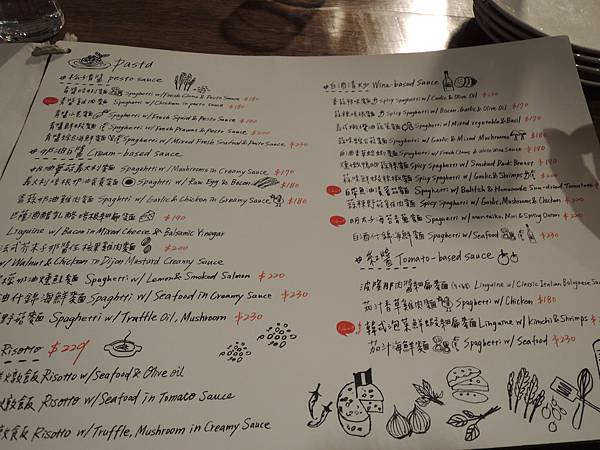 Pasta
# 松子青醬 pesto sauce
青醬蛤蜊麵 Spaghetti w/Fresh Clams & Pesto Sauce $180
青醬雞肉麵 Spaghetti w/Chicken in pesto sauce $180
Spaghetti w/Fresh Squid & Pesto Sauce $190
青醬鮮蝦麵 Spaghetti w/Fresh Prawns & Pesto Sauce $200
青醬綜合海鮮麵 Spaghetti w/Mixed Fresh Seafood & Pesto Sauce $230
# 奶油白醬 Cream-based sauce
奶油蘑菇義大利麵 Spaghetti w/Mushrooms in Creamy Sauce $170
義大利培根奶油蛋黃麵 Spaghetti w/Raw Egg & Bacon $180
蒜菇奶油雞肉麵 Spaghetti w/Garlic & Chicken in Creamy Sauce $180
巴薩酒醋乳酪培根細扁麵 $190
Linguine w/Bacon in Mixed Cheese & Balsamic Vinegar
法式芥末子醬佐核果雞肉麵 $200
w/Walnut & Chicken in Dijon Mustard Creamy Sauce
奶油燻鮭麵 Spaghetti w/Lemon & Smoked Salmon $220
油什錦海鮮麵 Spaghetti w/Seafood in Creamy Sauce $230
野菇麵 Spaghetti w/Truffle Oil, Mushroom $230
Risotto $220
燉飯 Risotto w/Seafood & Olive oil
燉飯 Risotto w/Seafood in Tomato Sauce
飯 Risotto w/Truffle, Mushroom in Creamy Sauce
# 白酒清炒 Wine-based Sauce
蒜辣辣麵 Spicy Spaghetti w/Garlic & Olive Oil $150
Spicy Spaghetti w/Bacon, Garlic & Olive Oil $170
Spaghetti w/Mixed vegetable & Basil $170
Spaghetti w/Garlic & Mixed Mushrooms $180
Spaghetti w/Fresh Clams & White Wine Sauce $190
Spicy Spaghetti w/Smoked Duck Breast $190
Spicy Spaghetti w/Garlic & Shrimps $200
Spaghetti w/Babyfish & Homemade Sun-dried Tomatoes
Spicy Spaghetti w/Garlic, Mushroom & Chicken $200
New 明太子海苔蔥麵 Spaghetti w/mentaiko, Nori & Spring Onion $220
白酒什錦海鮮麵 Spaghetti w/Seafood $230
# 紅醬 Tomato-based sauce
波隆那肉醬細扁麵 Linguine w/Classic Italian Bolognese Sauce
茄汁香草雞肉麵 Spaghetti w/Chicken $180
New 韓式泡菜鮮蝦細扁麵 Linguine w/kimchi & Shrimps $220
茄汁海鮮麵 Spaghetti w/Seafood $230